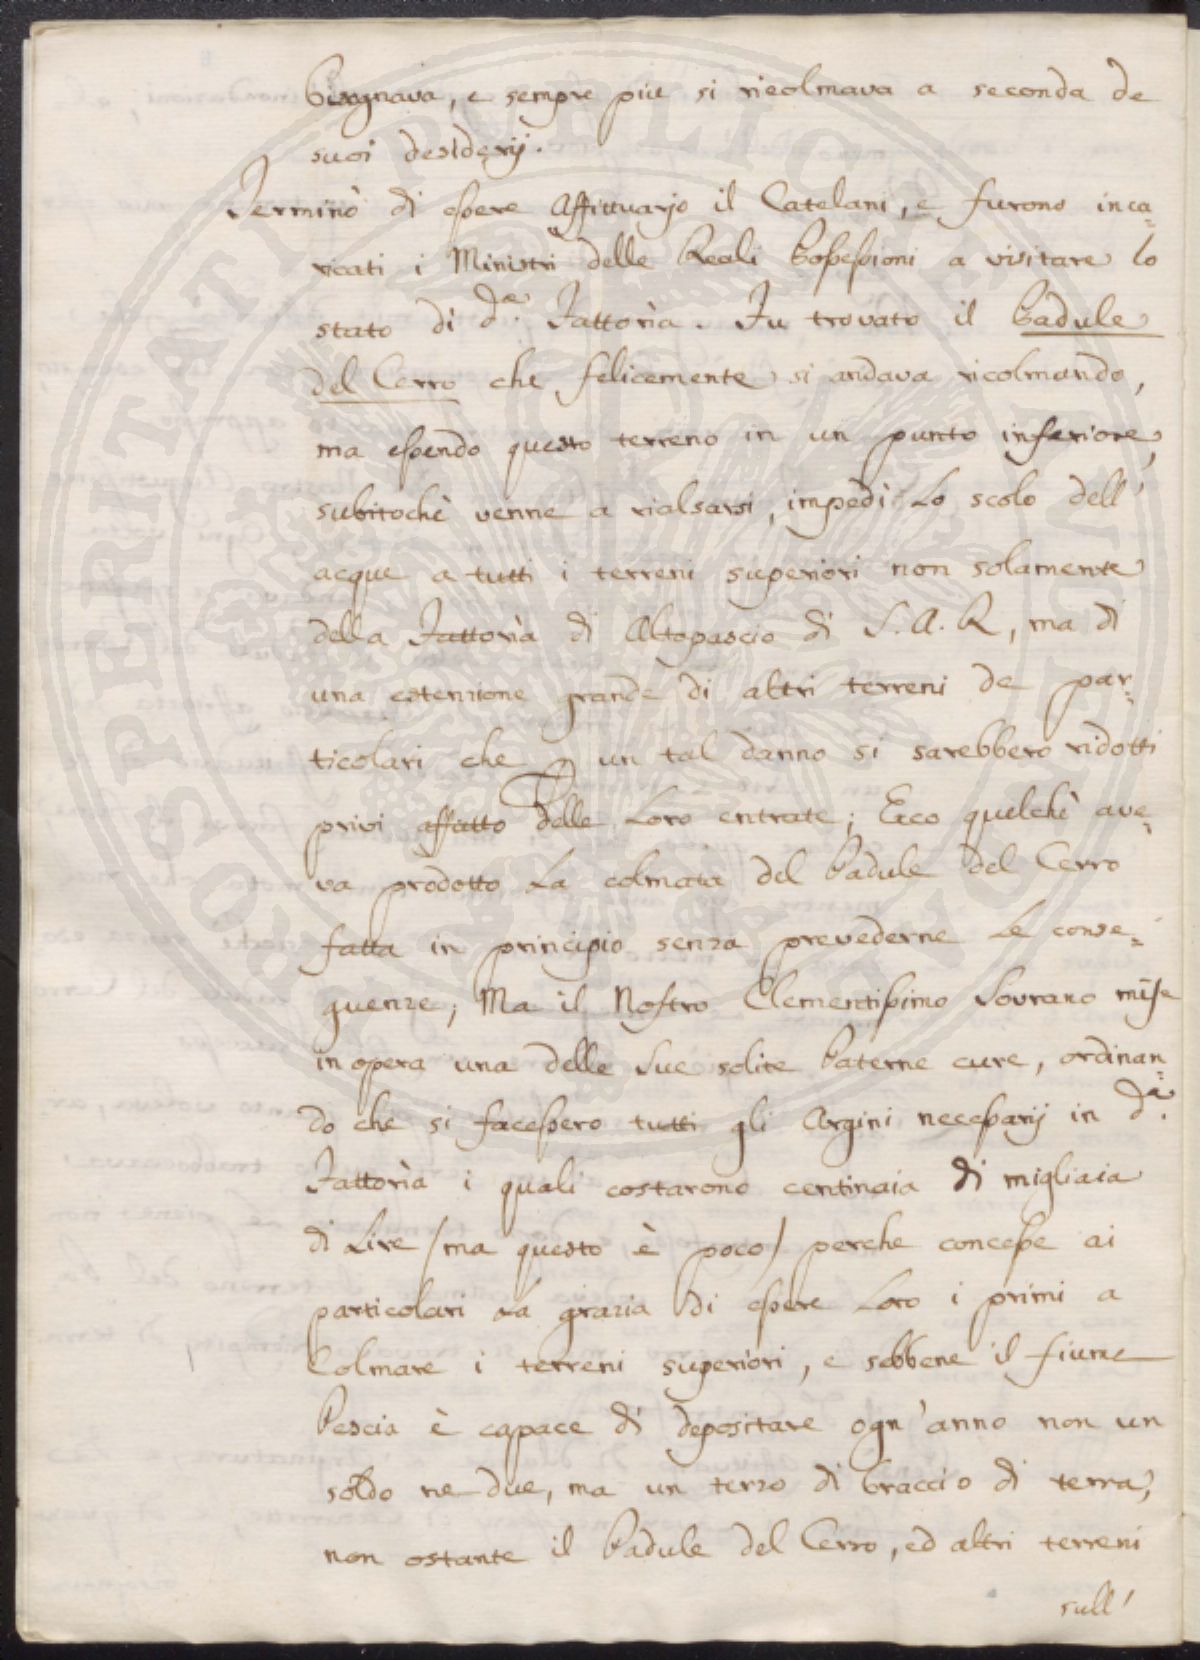 bisognava, e sempre piu si ricolmava a seconda de
suoi desiderij.
Terminò di essere Affittuario il Catelani, e furono inca=
ricati i Ministri delle Reali Possessioni a visitare lo
stato di d.ª Fattorìa. Fu trovato il Padule
del Cerro che felicemente si andava ricolmando,
ma essendo questo terreno in un punto inferiore,
subitochè venne a rialsarsi, impedì Lo scolo dell'
acque a tutti i terreni superiori non solamente
della Fattorìa di Altopascio di S.A.R, ma di
una estenzione grande di altri terreni de par=
ticolari che p un tal danno si sarebbero ridotti
privi affatto delle Loro entrate; Ecco quelchè ave=
va prodotto La colmata del Padule del Cerro
fatta in principio senza prevederne Le conse=
guenze; Ma il Nostro Clementissimo Sovrano mise
in opera una delle Sue solite Paterne cure, ordinan=
do che si facessero tutti gli Argini necessarij in d.ª
Fattorìa i quali costarono centinaia di migliaia
di Lire /ma questo è poco/ perche concesse ai
particolari La grazia di essere Loro i primi a
Colmare i terreni superiori, e sebbene il fiume
Pescia è capace di depositare ogn'anno non un
soldo ne due, ma un terzo di braccio di terra,
non ostante il Padule del Cerro, ed altri terreni
sull'
PROSPERITATI PUBLICAE AUGENDAE